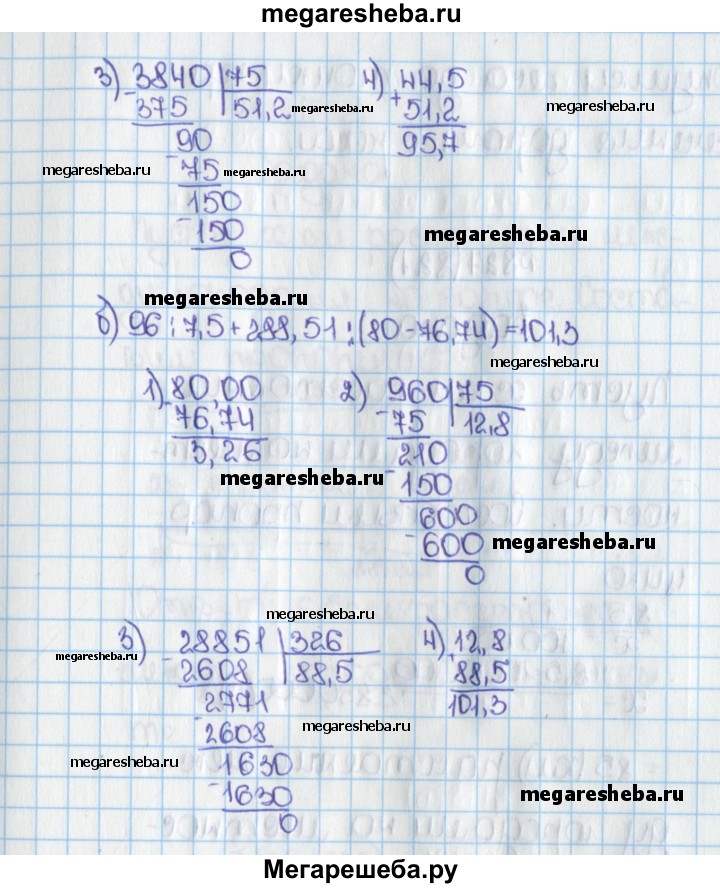 megaresheba.ru
3) 3840 | 75 4) 44,5
- 375 51,2 megaresheba.ru + 51,2 megaresheba.ru
90 95,7
megaresheba.ru - 75 megaresheba.ru
150
- 150 megaresheba.ru
0
megaresheba.ru
б) 96 : 7,5 + 288,51 : (80 - 76,74) = 101,3
megaresheba.ru
1) 80,00 2) 960 | 75
- 76,74 - 75 12,8
3,26 210
megaresheba.ru - 150
600
- 600 megaresheba.ru
0
megaresheba.ru
3) 28851 | 326 4) 12,8
megaresheba.ru - 2608 88,5 + 88,5
2771 101,3
- 2608 megaresheba.ru
megaresheba.ru 1630
- 1630 megaresheba.ru
0
Мегарешеба.ру